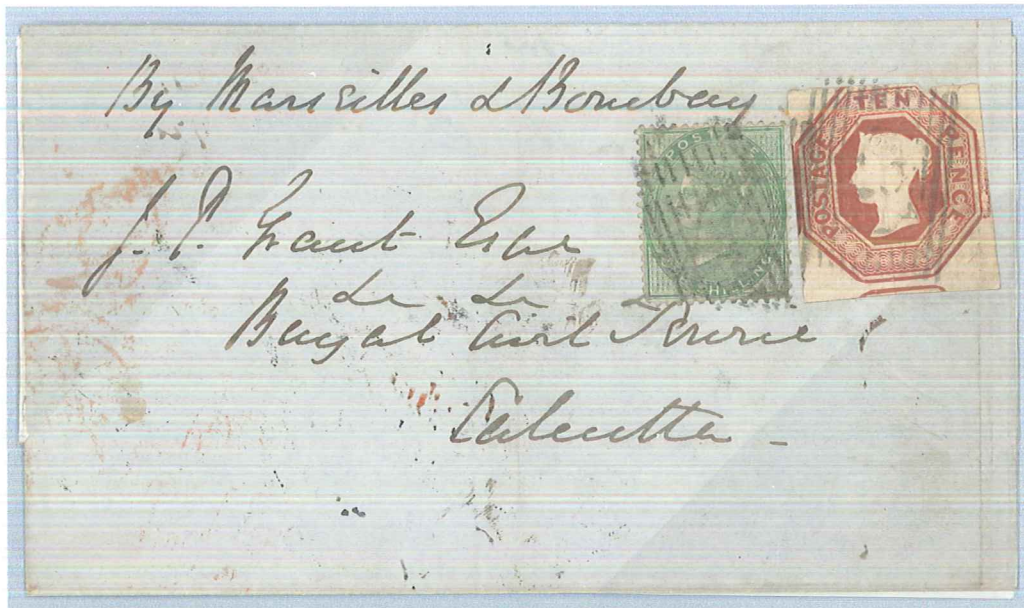 By Marseilles & Bombay
J. P. Grant Esqr
&c &c
Bengal Civil Service
Calcutta –
POSTAGE
ONE SHILLING
POSTAGE TEN PENCE